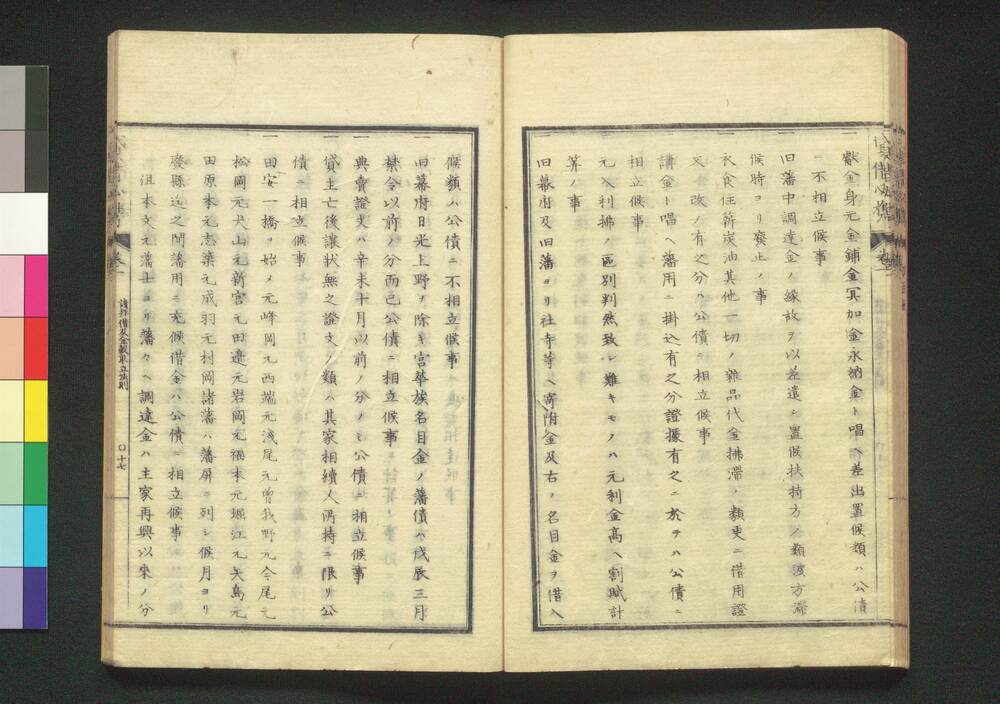 一獻金身元金鋪金冥加金永納金ト唱ヘ差出置候類ハ公債
ニ不相立候事
一旧藩中調達金ノ縁故ヲ以差遣シ置候扶持方ノ類渡方滞
候時ヨリ廃止ノ事
一衣食住薪炭油其他一切ノ雜品代金拂滞ノ類更ニ借用證
文ニ改ノ有之分ハ公債ニ相立候事
一講金ト唱ヘ藩用ニ掛込有之分證據有之ニ於テハ公債ニ
相立候事
一元ヘ入利拂ノ區別判然致シ難キモノハ元利金高ヘ割賦計
算ノ事
一旧幕府及旧藩ヨリ社寺等ヘ寄附金及右ノ名目金ヲ借入
候類ハ公債ニ不相立候事
一旧幕府日光上野ヲ除キ宮華族名目金ノ藩債ハ戊辰三月
禁令以前ノ分而已公債ニ相立候事
一典賣證文ハ辛未十月以前ノ分ノミ公債ニ相立候事
一貸主亡後讓状無之證文ノ類ハ其家相續人所持ニ限リ公
債ニ相立候事
一田安一橋ヲ始メ元峰岡元西端元淺尾元曾我野元今尾元
松岡元犬山元新宮元田邉元岩岡元福本元堀江元矢島元
田原本元志築元成羽元村岡諸藩ハ藩屏ニ列シ候月ヨリ
廢縣迄之間藩用ニ充候借金ハ公債ニ相立候事
但本文元藩士ヨリ藩々ヘ調達金ハ主家再興以来ノ分
巻一
〇十七